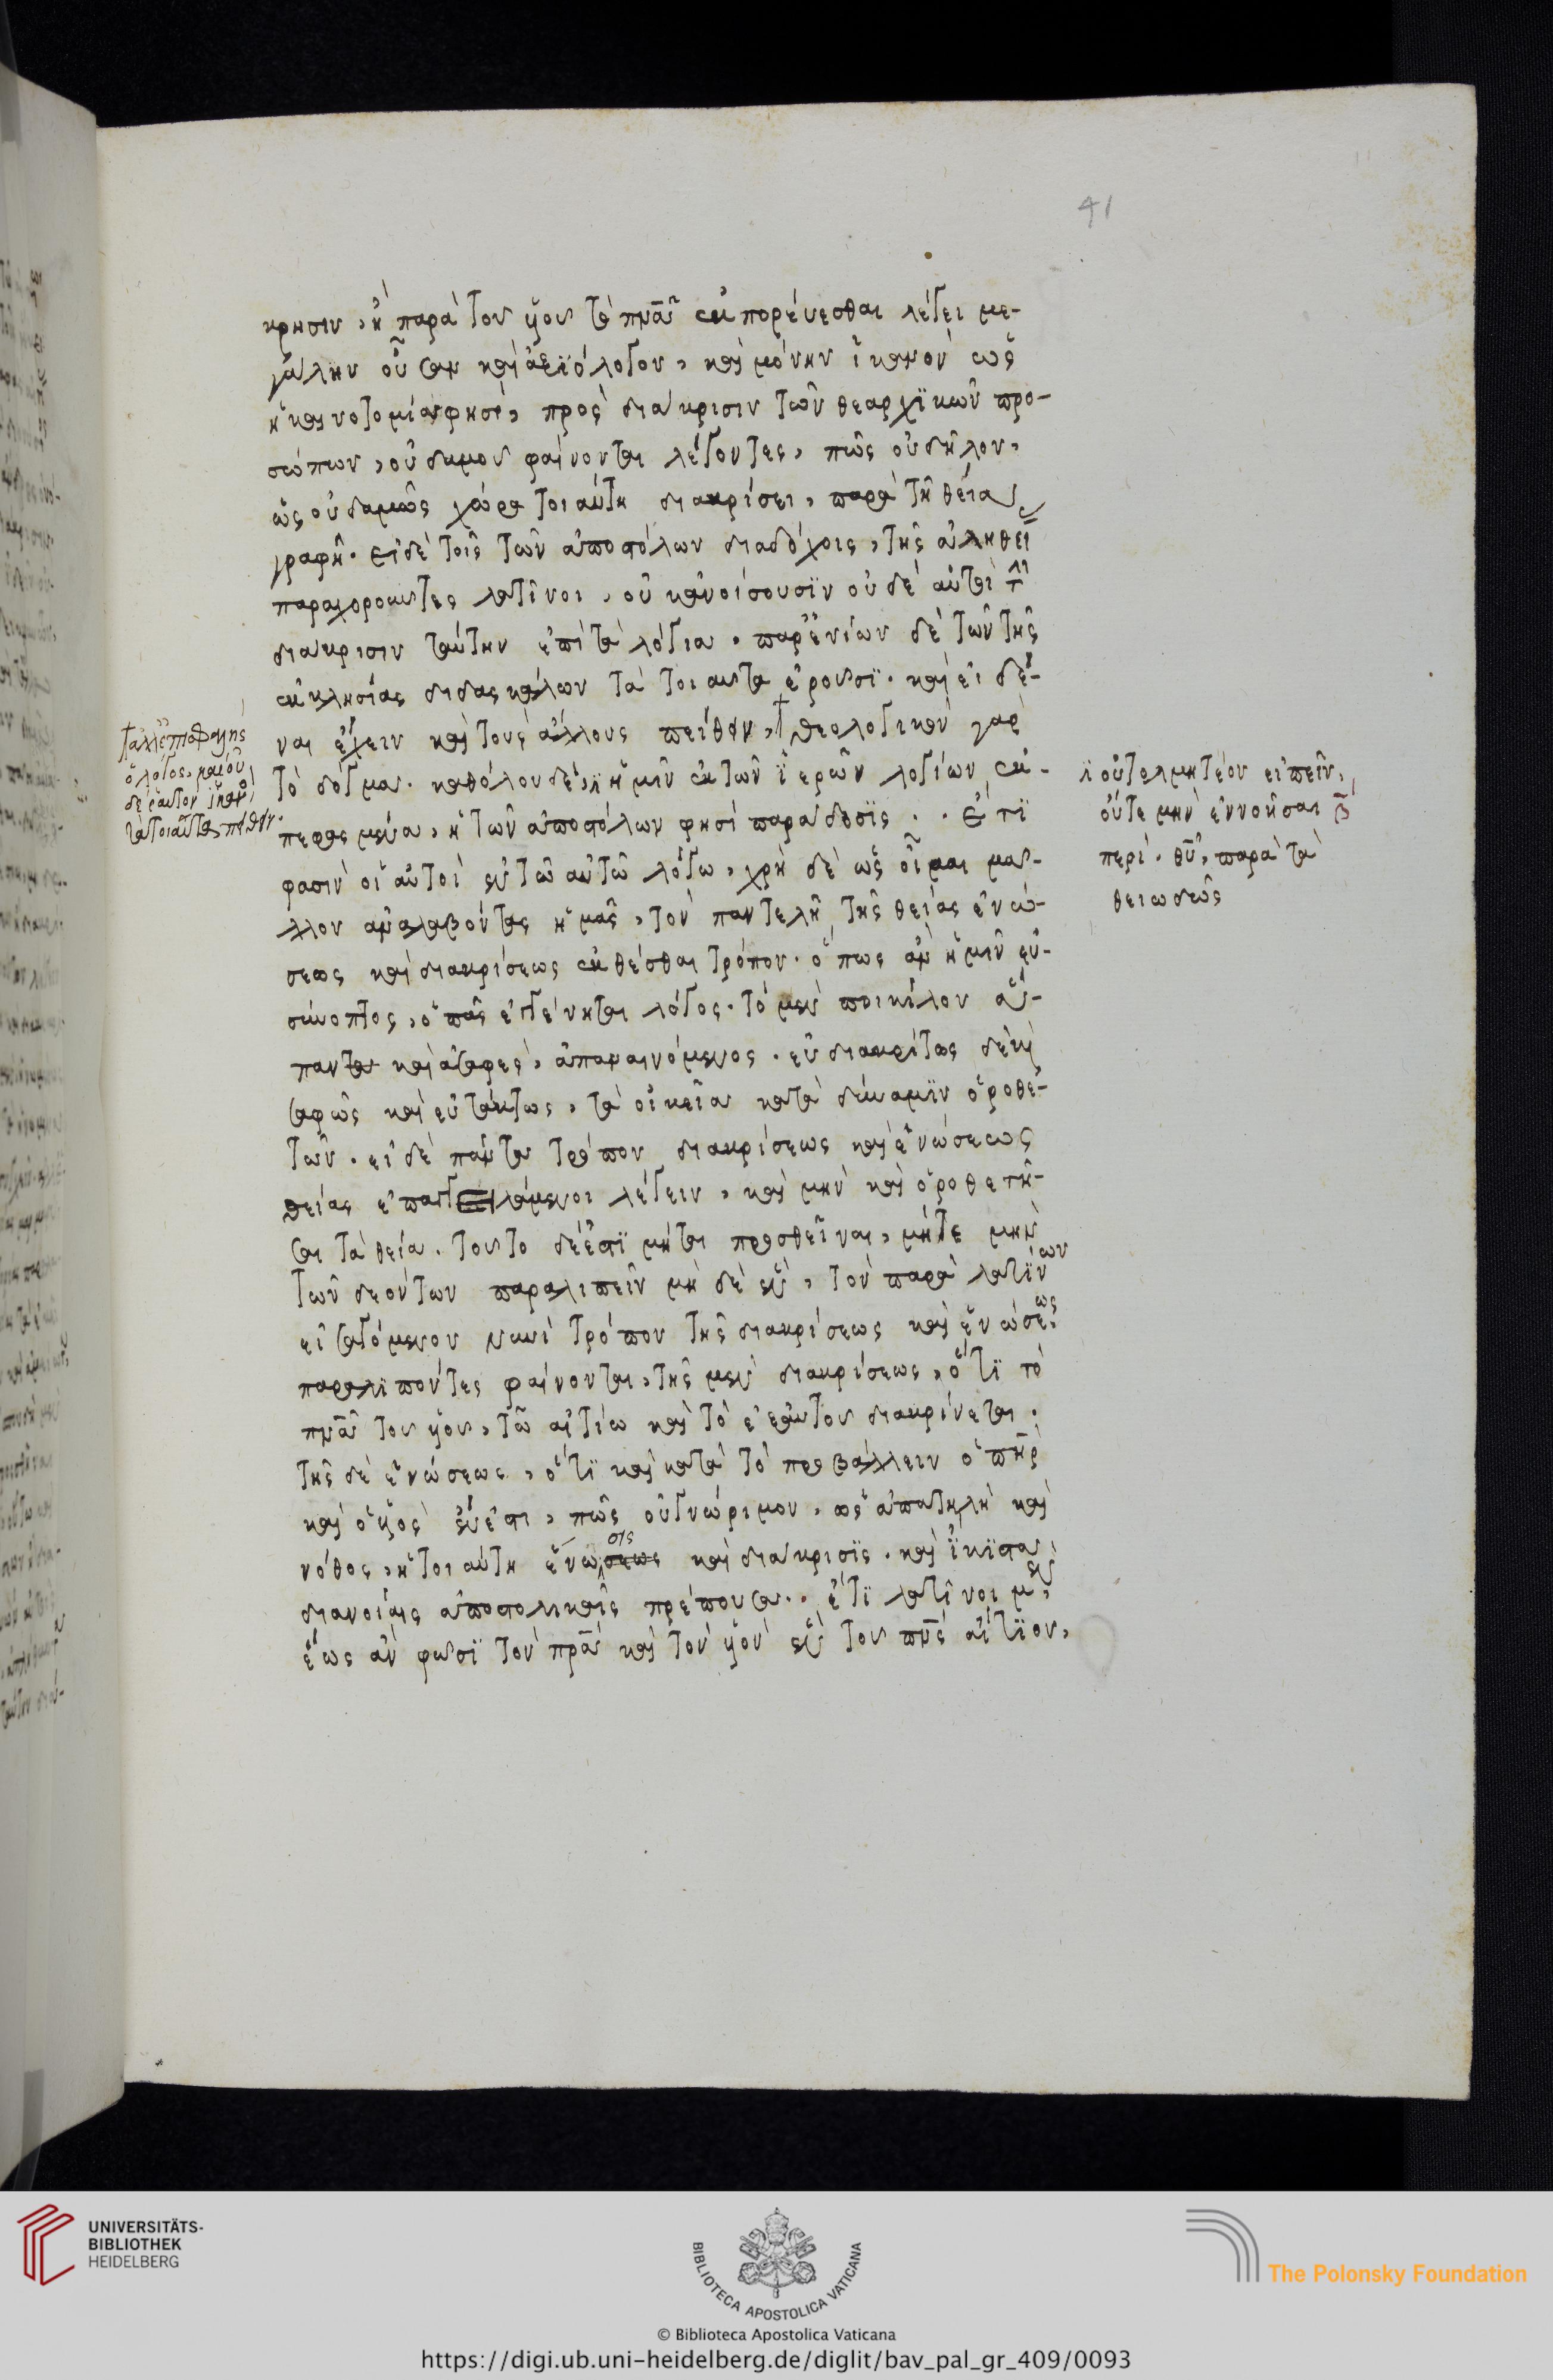 41
κρησιν, ἢ παρὰ τοῦ υἱοῦ τὸ πν̅α̅ ἐκπορεύεσθαι λέγει με-
γάλην οὖσαν καὶ ἀξϊόλογον, καὶ μόνην ἱκανὸν ὡς
ἡ καινοτομία φησὶ, πρὸς διάκρισιν τῶν θεαρχϊκῶν προ-
σώπων, οὐδαμοῦ φαίνονται λέγοντες, πῶς οὐ δῆλον,
ὡς οὐδαμῶς χώρα τοιαύτη διακρίσει, παρὰ τῇ θεία
γραφῇ. εἰ δὲ τοῖς τῶν ἀποστόλων διαδόχοις, τῆς ἀληθεί
λατῖνοι, οὐκ ἀνοίσουσϊν οὐδὲ αὐτοὶ τὴν
διάκρισιν ταύτην ἐπὶ τὰ λόγια. παρ' ἐνίων δὲ τῶν τῆς
ἐκκλησίας διδασκάλων τὰ τοιαῦτα ἐροῦσϊ. καὶ εἰ δέ-
ναι ἔχειν καὶ τοὺς ἄλλους πείθειν, † θεολογικὸν γὰρ
τὸ δόγμα. καθόλου δὲ, ἡμῖν ἐκ τῶν ἱερῶν λογίων ἐκ-
πεφασμένα, ἡ τῶν ἀποστόλων φησὶ παράδοσϊς. . Ἔτϊ
φασὶν οἱ αὐτοὶ ἐν τῶ αὐτῶ λόγω, χρὴ δὲ ὡς οἶμαι μᾶ-
λλον ἀναλαβόντας ἡμᾶς, τὸν παντελῆ τῆς θείας ἑνώ-
σεως καὶ διακρίσεως ἐκθέσθαι τρόπον. ὅπως ἂν ἡμῖν εὐ-
σύνοπτος, ὁ πᾶς γένηται λόγος. τὸ μὲν ποικίλον ἅ-
παντα καὶ ἀσαφὲς, ἀπαναινόμενος. εὐδιακρίτως δὲ καὶ
σαφῶς καὶ εὐτάκτως, τὰ οἰκεῖα κατὰ δύναμϊν ὁροθε-
τῶν. εἰ δὲ πάντα τρόπον διακρίσεως καὶ ἑνώσεως
θείας λέγειν, καὶ μὴν καὶ ὁροθετῆ-
σαι τὰ θεία. τοῦτο δέ ἐστϊ μήτε προσθεῖναι, μήτε μὴν
τῶν δεόντων παραλιπεῖν μηδὲ ἓν, τὸν παρὰ λατϊνων
εἰσαγόμενον νυνὶ τρόπον τῆς διακρίσεως καὶ ἑνώσεως
παραλιπόντες φαίνονται, τῆς μὲν διακρίσεως, ὅτϊ τὸ
πν̅α̅ τοῦ υἱοῦ, τῶ αἰτίω καὶ τὸ ἐξ αὐτοῦ διακρίνεται.
τῆς δὲ ἑνώσεως, ὅτϊ καὶ κατὰ τὸ προβάλλειν ὁ πη̅ρ
καὶ ὁ υἱὸς ἕν ἐστι, πῶς οὐ γνώριμον, ὡς ἀπατηλὴ καὶ
νόθος, ἡ τοιαύτη ἕνωσις καὶ διάκρισϊς. καὶ ἥκϊστα
διανοίαις ἀποστολικαῖς πρέπουσα. . ἔτϊ λατῖνοι μὲν,
ἕως ἂν φωσϊ τὸν πρ̅α̅ καὶ τὸν υἱὸν ἓν τοῦ πν̅ς̅ αἴτϊον,
ὁ λόγος, καὶ οὐ
δὲ ἑαυτὸν ἱκανὸν
τὰ τοιαῦτα πείθειν.
οὐ τολμητέον εἰπεῖν,
οὔτε μὴν ἐννοῆσαι
περὶ θ̅υ̅, παρὰ τὰ
θειωδῶς
UNIVERSITÄTS-
BIBLIOTHEK
HEIDELBERG
BIBLIOTECA APOSTOLICA VATICANA
The Polonsky Foundation
© Biblioteca Apostolica Vaticana
https://digi.ub.uni-heidelberg.de/diglit/bav_pal_gr_409/0093